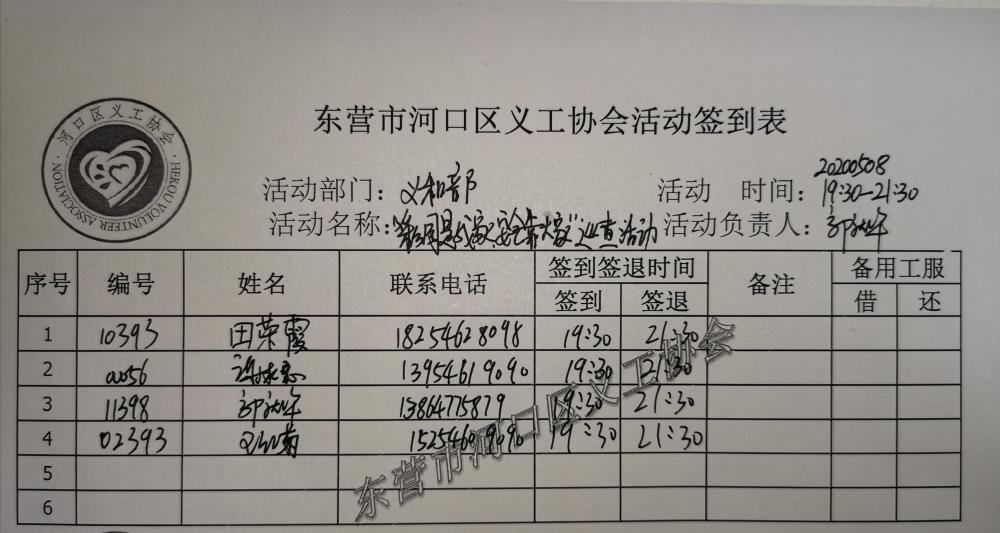 东营市河口区义工协会活动签到表
河口区义工协会
HEKOU VOLUNTEER ASSOCIATION
20200508
活动部门：义和部 活动 时间：19:30-21:30
活动名称：是我家 安全靠大家"巡查活动 活动负责人：
序号 编号 姓名 联系电话 签到签退时间 备注 备用工服
签到 签退 借 还
1 10393 田荣霞 18254628098 19:30 21:30
2 13954619090 19:30 21:30
3 11398 13864775879 19:30 21:30
4 02393 15254609090 19:30 21:30
5
6
东营市河口区义工协会